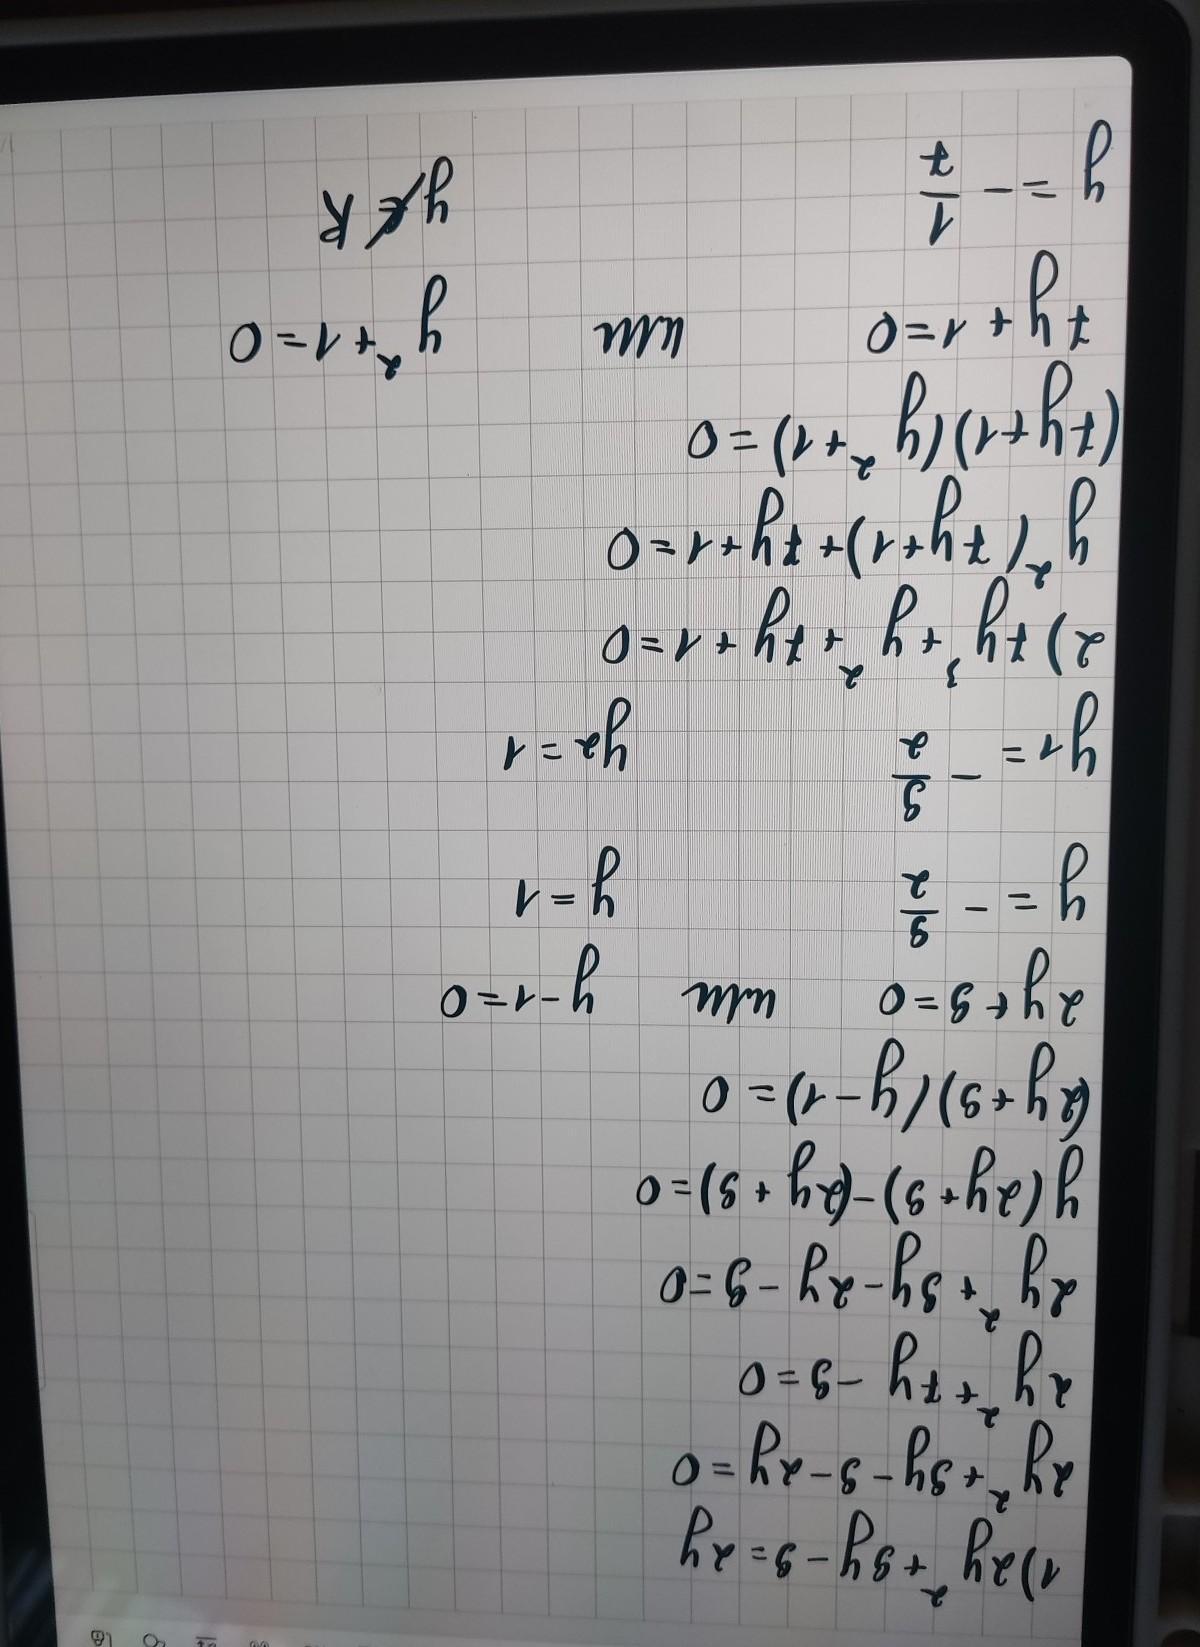 1) 2y² + 9y - 9 = 2y
2y² + 9y - 9 - 2y = 0
2y² + 7y - 9 = 0
2y² + 9y - 2y - 9 = 0
y(2y + 9) - (2y + 9) = 0
(2y + 9)(y - 1) = 0
2y + 9 = 0 или y - 1 = 0
y = - 9/2 y = 1
y1 = - 9/2 y2 = 1
2) 7y³ + y² + 7y + 1 = 0
y²(7y + 1) + 7y + 1 = 0
(7y + 1)(y² + 1) = 0
7y + 1 = 0 или y² + 1 = 0
y = - 1/7 y ∉ R